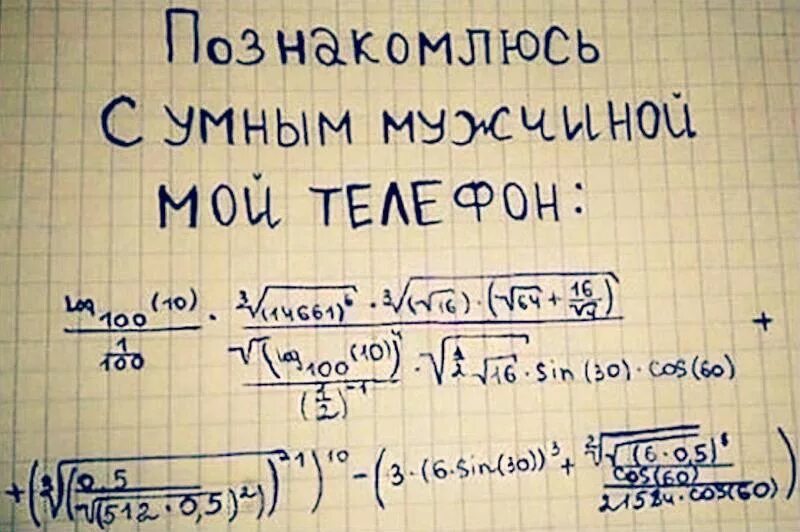 Познакомлюсь
с умным мужчиной
мой телефон:
log₁₀₀(10) / (1/100) · ∛(14661)⁶ · ∛((√16) · (√64 + 16/√4)) / (√(log₁₀₀(10))⁴ / (1/2)⁻¹ · √(1/2 √16) · sin(30) · cos(60)) +
+ (∛(0,5 / √(512 · 0,5)²))²¹)¹⁰ − (3 · (6 · sin(30))³ + √√(6 · 0,5)⁸ / cos(60) / 21584 · cos(60))